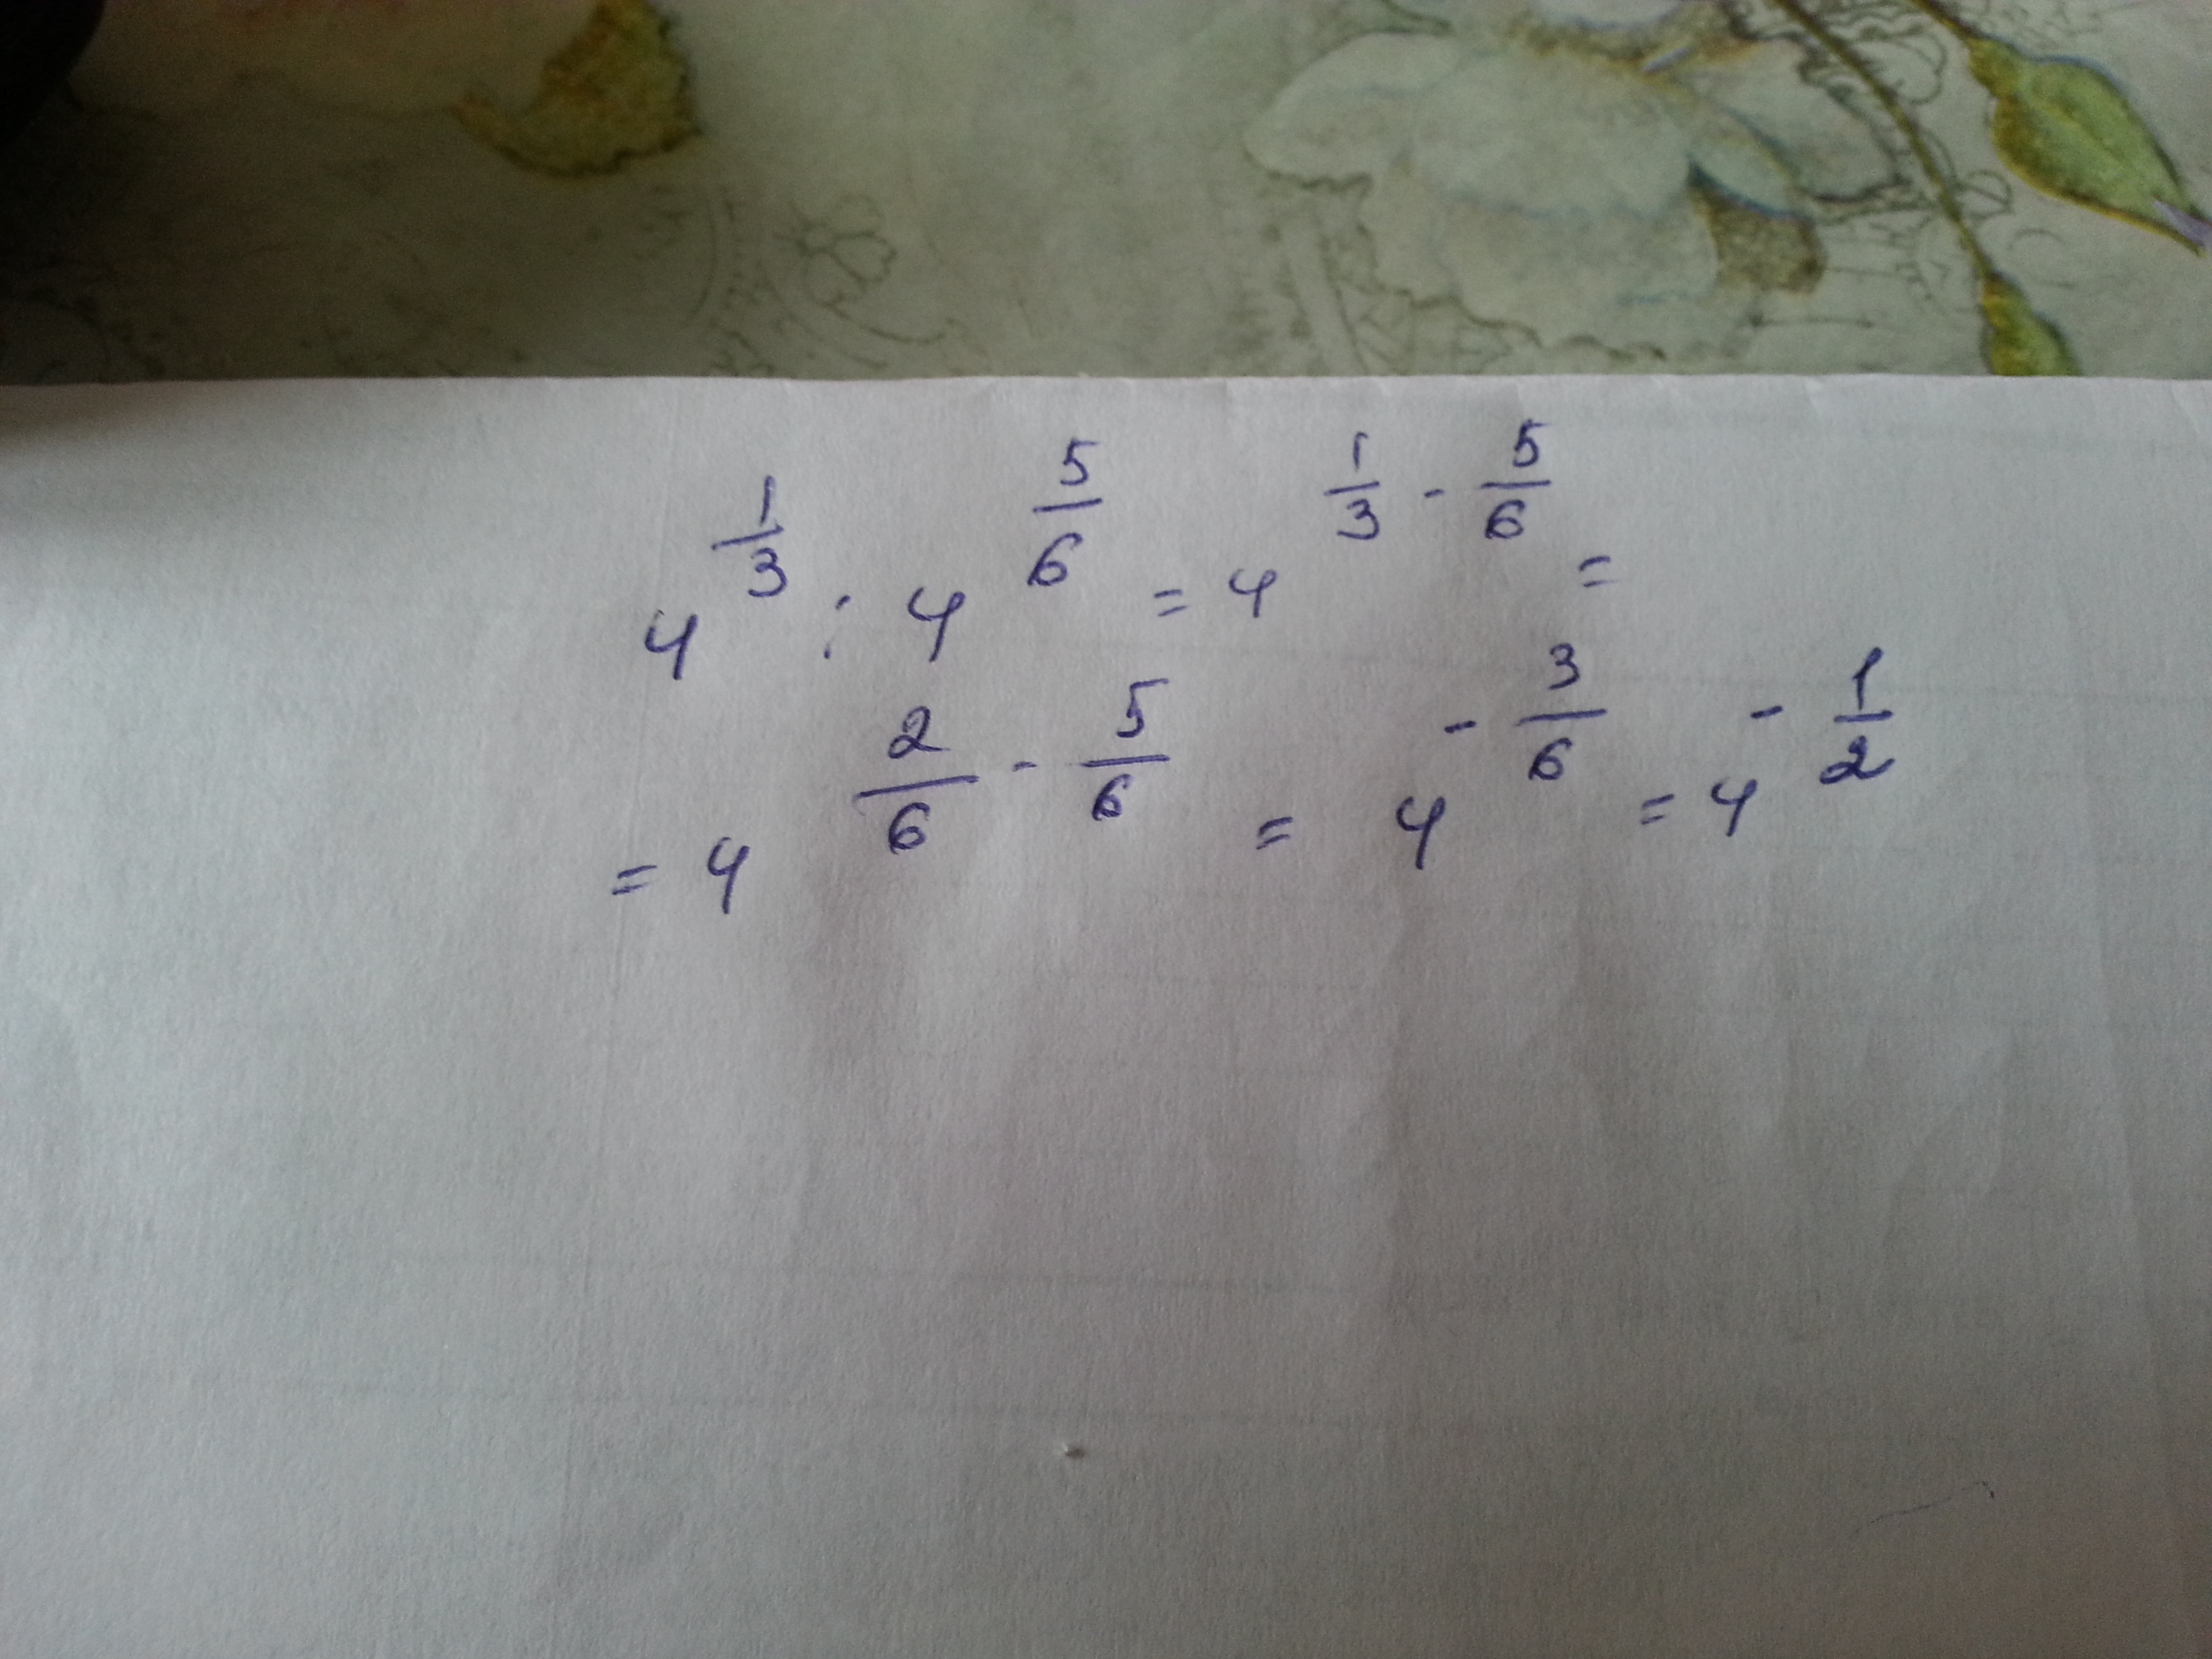 4^{\frac{1}{3}} : 4^{\frac{5}{6}} = 4^{\frac{1}{3} - \frac{5}{6}} =
= 4^{\frac{2}{6} - \frac{5}{6}} = 4^{-\frac{3}{6}} = 4^{-\frac{1}{2}}